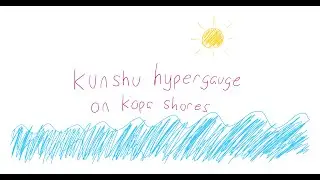 kunshu hypergauge
on kapa shores